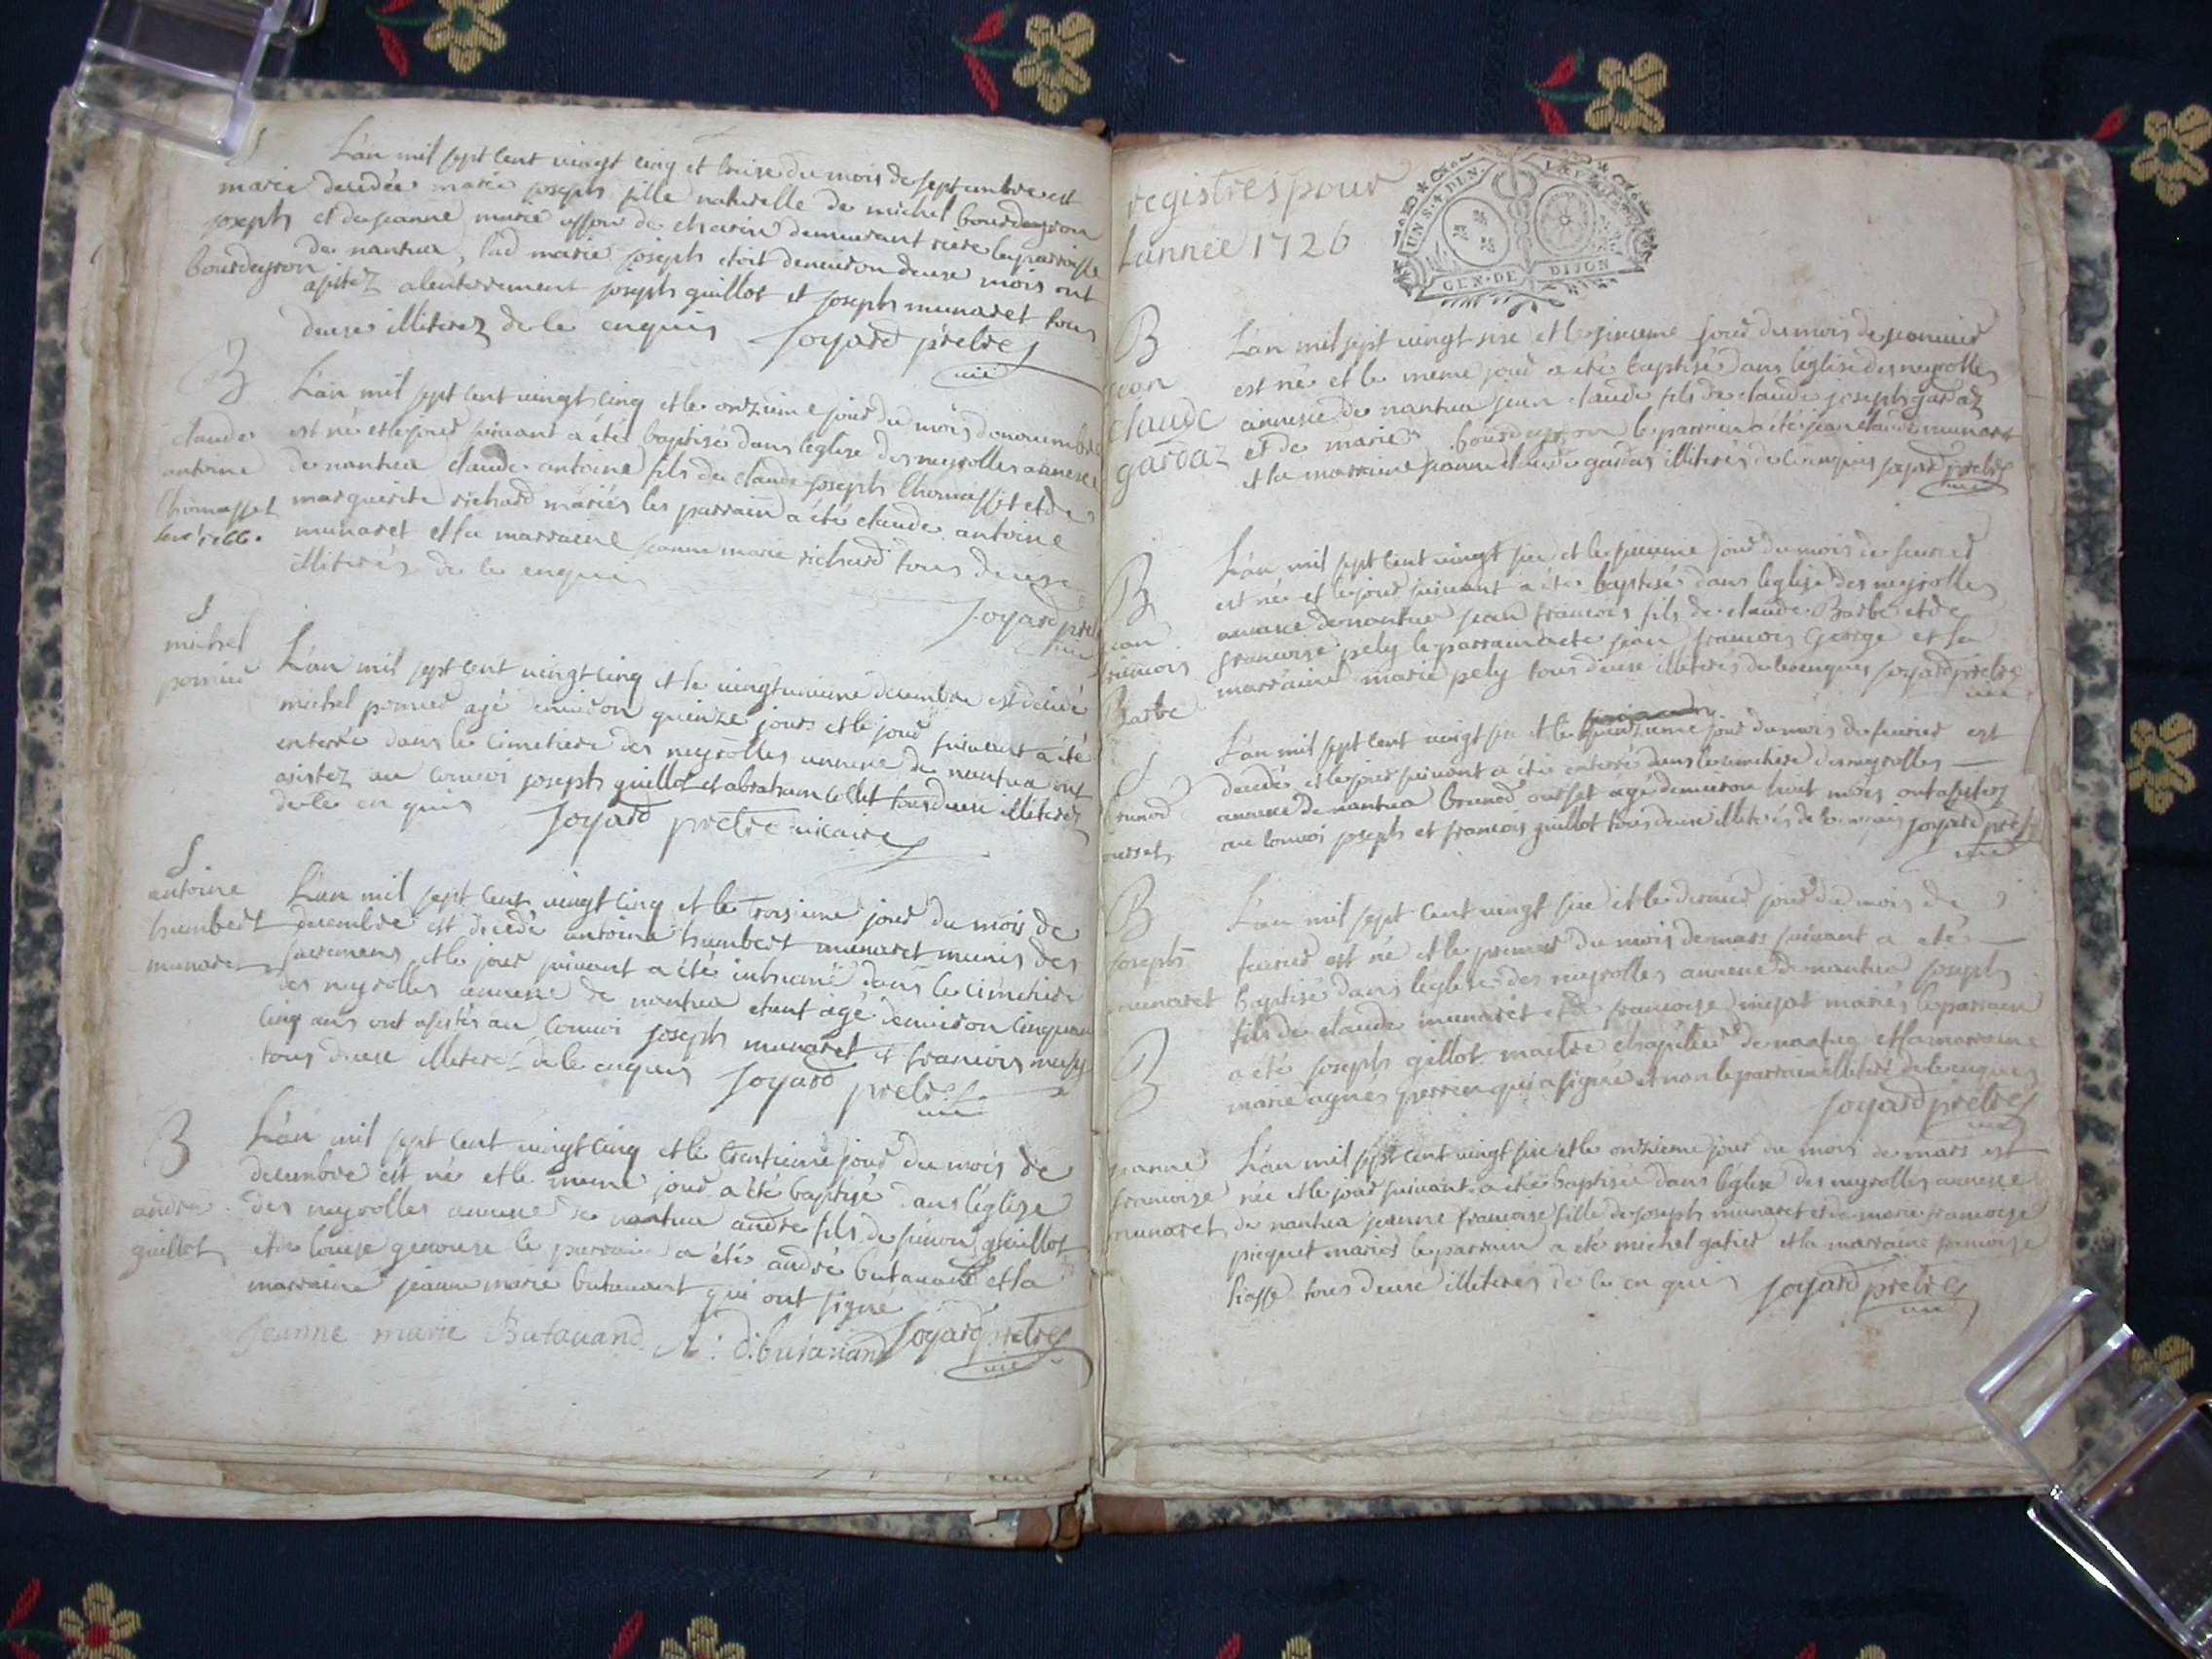 S
marie
joseph
bourdeyron
L'an mil sept cent vingt cinq et treise du mois de septembre est
decedée marie joseph fille naturelle de michel bourdeyron
et de jeanne marie de demeurant
de nantua, lad marie joseph etoit d'environ deuse mois ont
assistez alenterrement joseph guillot et joseph munaret tous
deuse illiterez de le enquis joyard prêtre
vic
B
claude
antoine
thomasset
L'an mil sept cent vingt cinq et le onzieme jour du mois de novembre
est né et le jour suivant a été baptisé dans l'église des neyrolles annexe
de nantua claude antoine fils de claude joseph thomasset et de
marguerite richard mariés le parrain a été claude antoine
munaret et la marraine jeanne marie richard tous deuse
illiterés de le enquis
joyard pre
vic
S
michel
pomier
L'an mil sept cent vingt cinq et le decembre est decedé
michel pomier agé d'environ quinze jours et le jour suivant a été
enterré dans le cimetiere des neyrolles annexe de nantua ont
asistez au convoi joseph guillot et abraham collet tous deuse illiterez
de le en quis joyard prêtre vicaire
S
antoine
humbert
munaret
L'an mil sept cent vingt cinq et le troisieme jour du mois de
decembre est decedé antoine humbert munaret munis des
sacremens et le jour suivant a été inhumé dans le cimetiere
des neyrolles annexe de nantua etant agé d'environ cinquan
cinq ans ont asistés au convoi joseph munaret et francois
tous deuse illiterez de le enquis joyard prêtre
vic
B
andre
guillot
L'an mil sept cent vingt cinq et le trentieme jour du mois de
decembre est né et le meme jour a été baptisé dans l'église
des neyrolles annexe de nantua andre fils de simon guillot
et de louise le parrain a été andré butavand et la
marraine jeanne marie butavant qui ont signé
Jeanne marie Butavand A: d: butavand joyard prêtre
vic
registres pour
l'année 1726
GEN·DE DIJON
B
jean
claude
gardaz
L'an mil sept vingt sise et le sixieme jour du mois de janvier
est né et le meme jour a été baptisé dans l'église des neyrolles
annexe de nantua jean claude fils de claude joseph gardaz
et de marie bourdeyron le parrain a été jean claude munaret
et la marraine jeanne claude gardas illiterés de le enquis joyard prêtre
vic
B
jean
francois
Barbe
L'an mil sept cent vingt sise et le jour du mois de fevrier
est né et le jour suivant a été baptisé dans l'église des neyrolles
annexe de nantua jean francois fils de claude Barbe et de
francoise pely le parrain a ete jean francois George et la
marraine marie pely tous deuse illiterés de le enquis joyard prêtre
vic
S
brunod
ousset
L'an mil sept cent vingt sise et le quinzieme jour du mois de fevrier est
decedé et le jour suivant a été enterré dans le cimetiere des neyrolles
annexe de nantua brunod ousset agé d'environ huit mois ont assistez
au convoi joseph et francois guillot tous deuse illiterés de le enquis joyard prêtre
vic
B
joseph
munaret
L'an mil sept cent vingt sise et le dernier jour du mois de
fevrier est né et le premier du mois de mars suivant a été
baptisé dans l'église des neyrolles annexe de nantua joseph
fils de claude munaret et de francoise mariés le parrain
a été joseph gillot maitre chapelier de nantua et la marraine
marie agnés perrin qui a signé et non le parrain illiteré de le enquis
joyard prêtre
vic
B
jeanne
francoise
munaret
L'an mil sept cent vingt sise et le onzieme jour du mois de mars est
née et le jour suivant a été baptisée dans l'église des neyrolles annexe
de nantua jeanne francoise fille de joseph munaret et de marie francoise
piquet mariés le parrain a eté michel gatier et la marraine francoise
tous deuse illiterés de le en quis joyard prêtre
vic